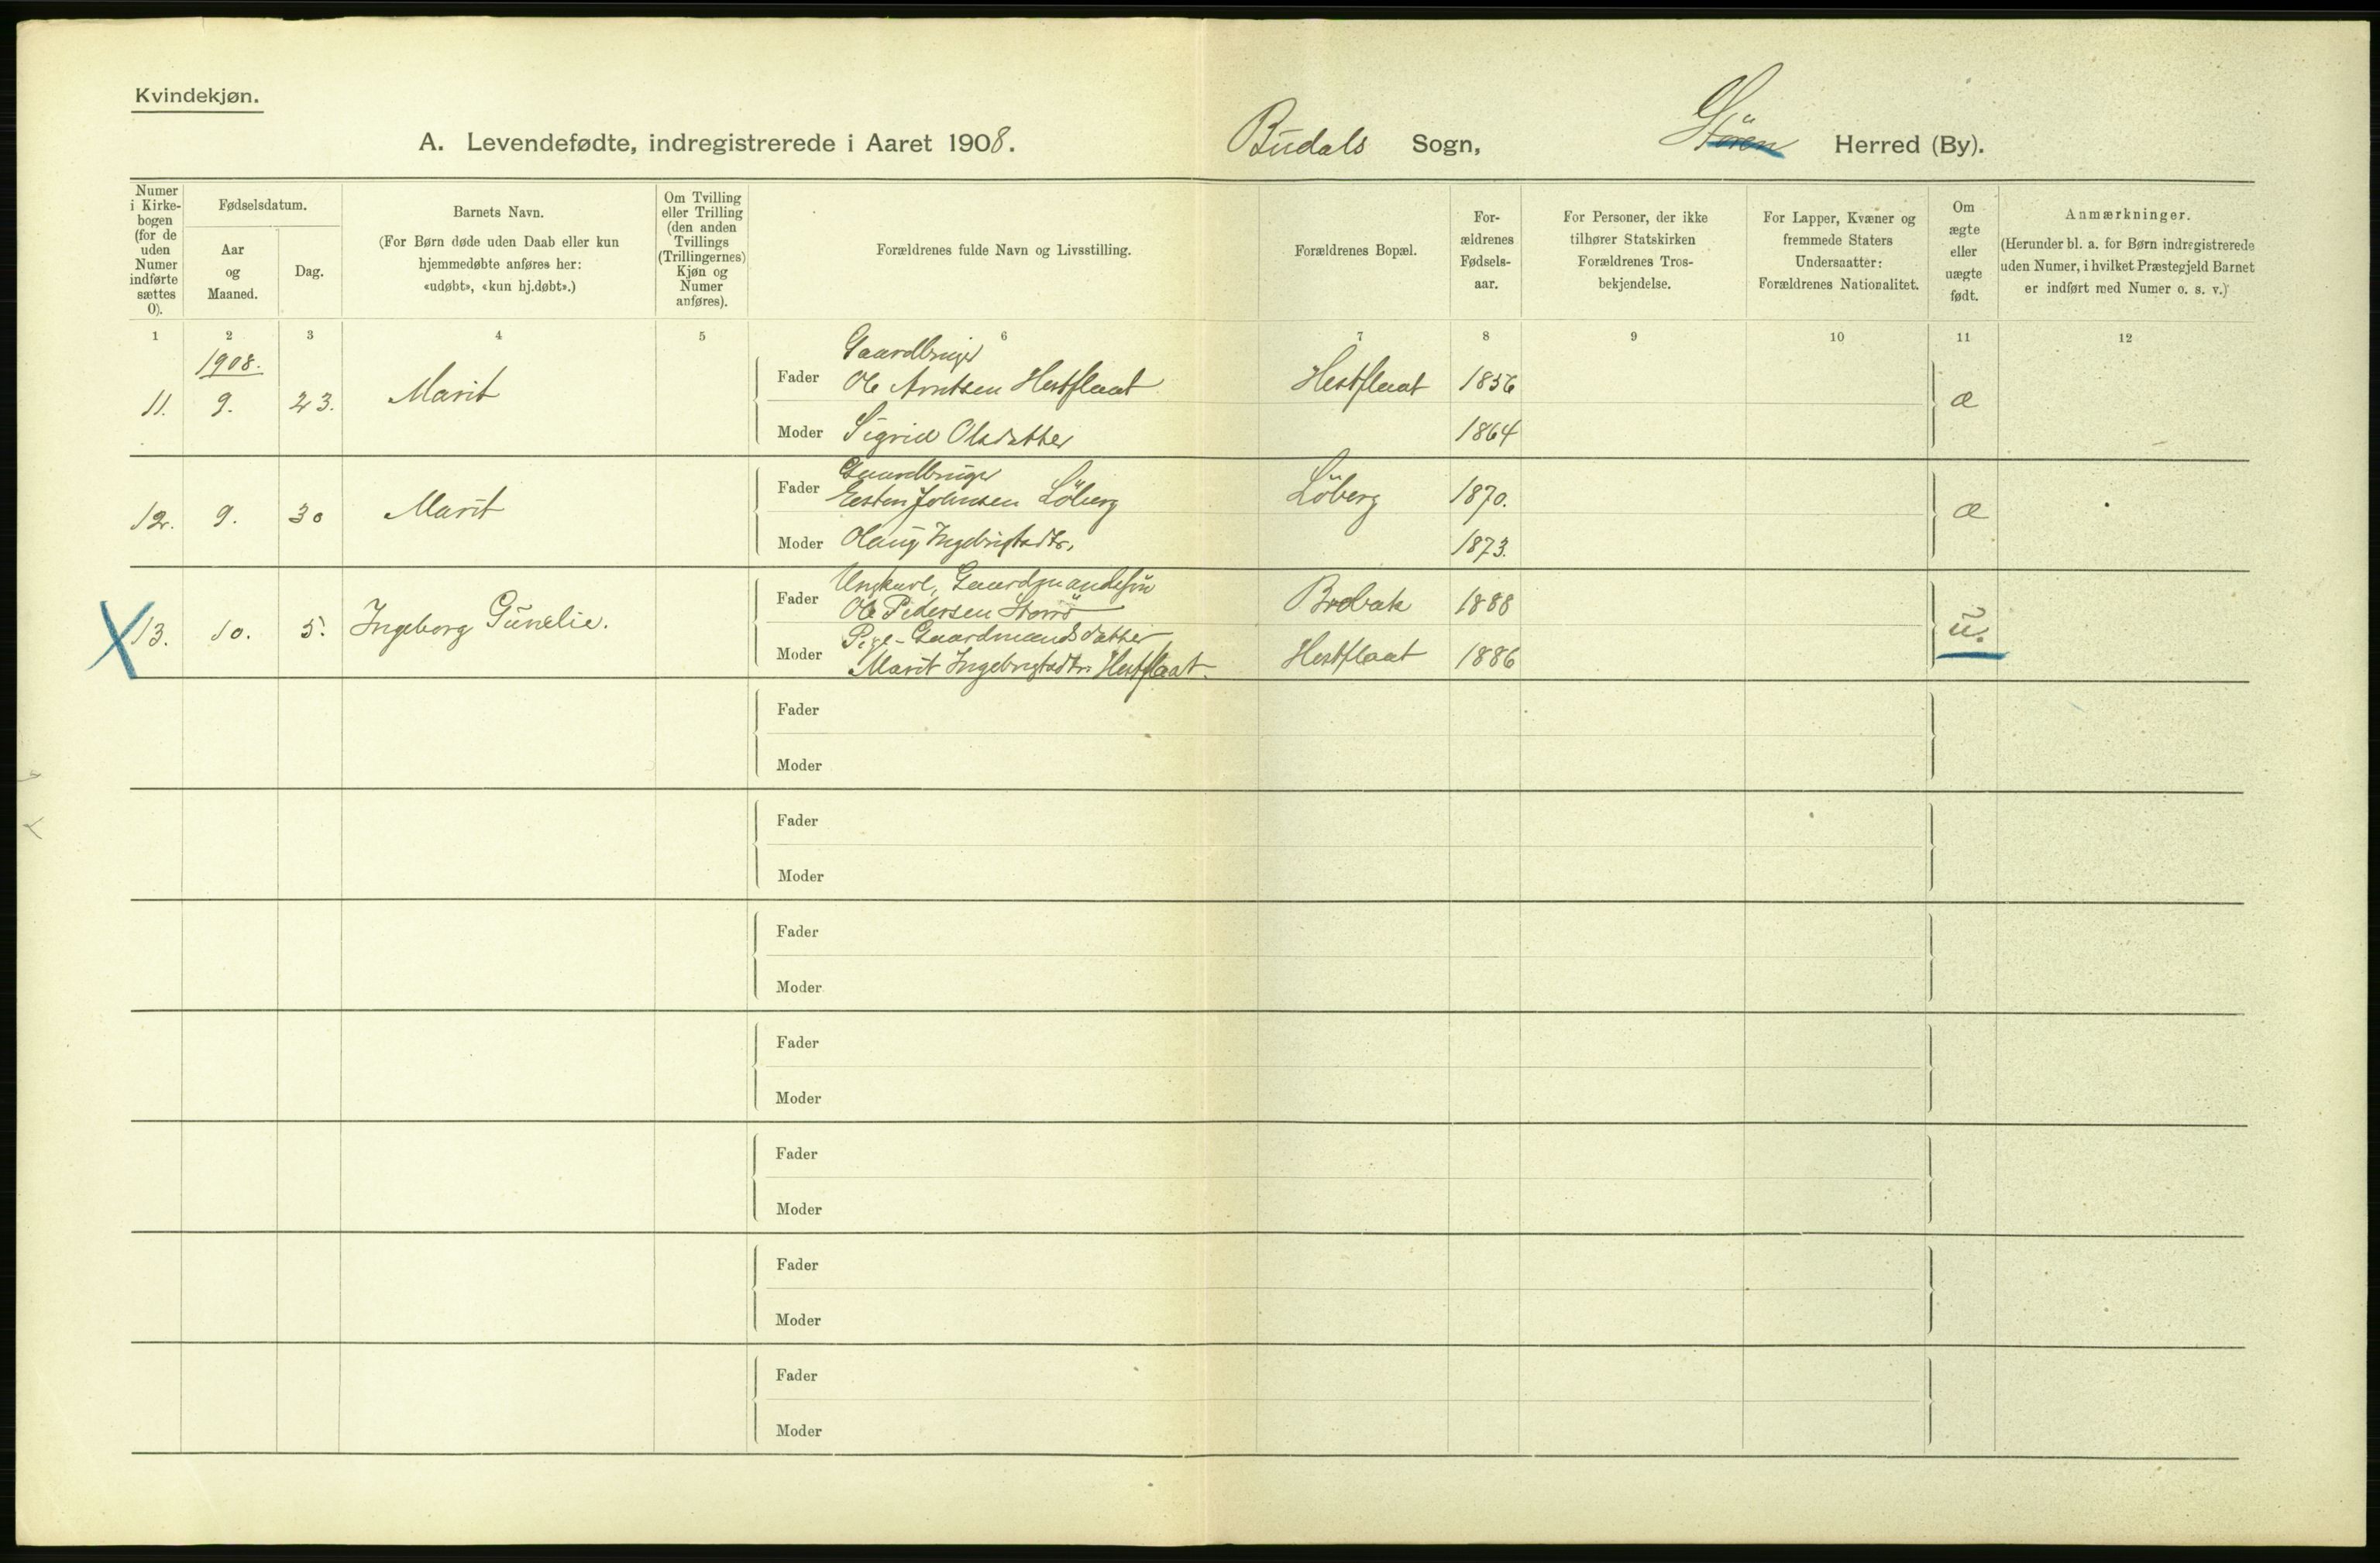 Kvindekjøn.
A. Levendefødte, indregistrerede i Aaret 1908. Budals Sogn, Stören Herred (By).
Numer i Kirke-bogen (for de uden Numer indførte sættes 0).
Fødselsdatum.
Aar og Maaned.
Dag.
Barnets Navn.
(For Børn døde uden Daab eller kun
hjemmedøbte anføres her:
«udøbt», «kun hj.døbt».)
Om Tvilling
eller Trilling
(den anden
Tvillings
(Trillingernes)
Kjøn og
Numer
anføres).
Forældrenes fulde Navn og Livsstilling.
Forældrenes Bopæl.
For-
ældrenes
Fødsels-
aar.
For Personer, der ikke
tilhører Statskirken
Forældrenes Tros-
bekjendelse.
For Lapper, Kvæner og
fremmede Staters
Undersaatter:
Forældrenes Nationalitet.
Om
ægte
eller
uægte
født.
Anmærkninger.
(Herunder bl. a. for Børn indregistrerede
uden Numer, i hvilket Præstegjeld Barnet
er indført med Numer o. s. v.)
1 2 3 4 5 6 7 8 9 10 11 12
1908.
Gaardbruger
11. 9. 23. Marit Fader Ole Arntsen Hestflaat Hestflaat 1856 æ
Moder Sigrid Olsdatter 1864
Gaardbruger
12. 9. 30 Marit Fader Esten Johnsen Löberg Löberg 1870. æ
Moder Olaug Ingebrigtsdtr. 1873.
Ungkarl, Gaardmandssön
13. 10. 5. Ingeborg Gunelie. Fader Ole Pedersen Storrö 1888 u.
Pige - Gaardmandsdatter
Moder Marit Ingebrigtsdtr. Hestflaat. Hestflaat 1886
Fader
Moder
Fader
Moder
Fader
Moder
Fader
Moder
Fader
Moder
Fader
Moder
Fader
Moder